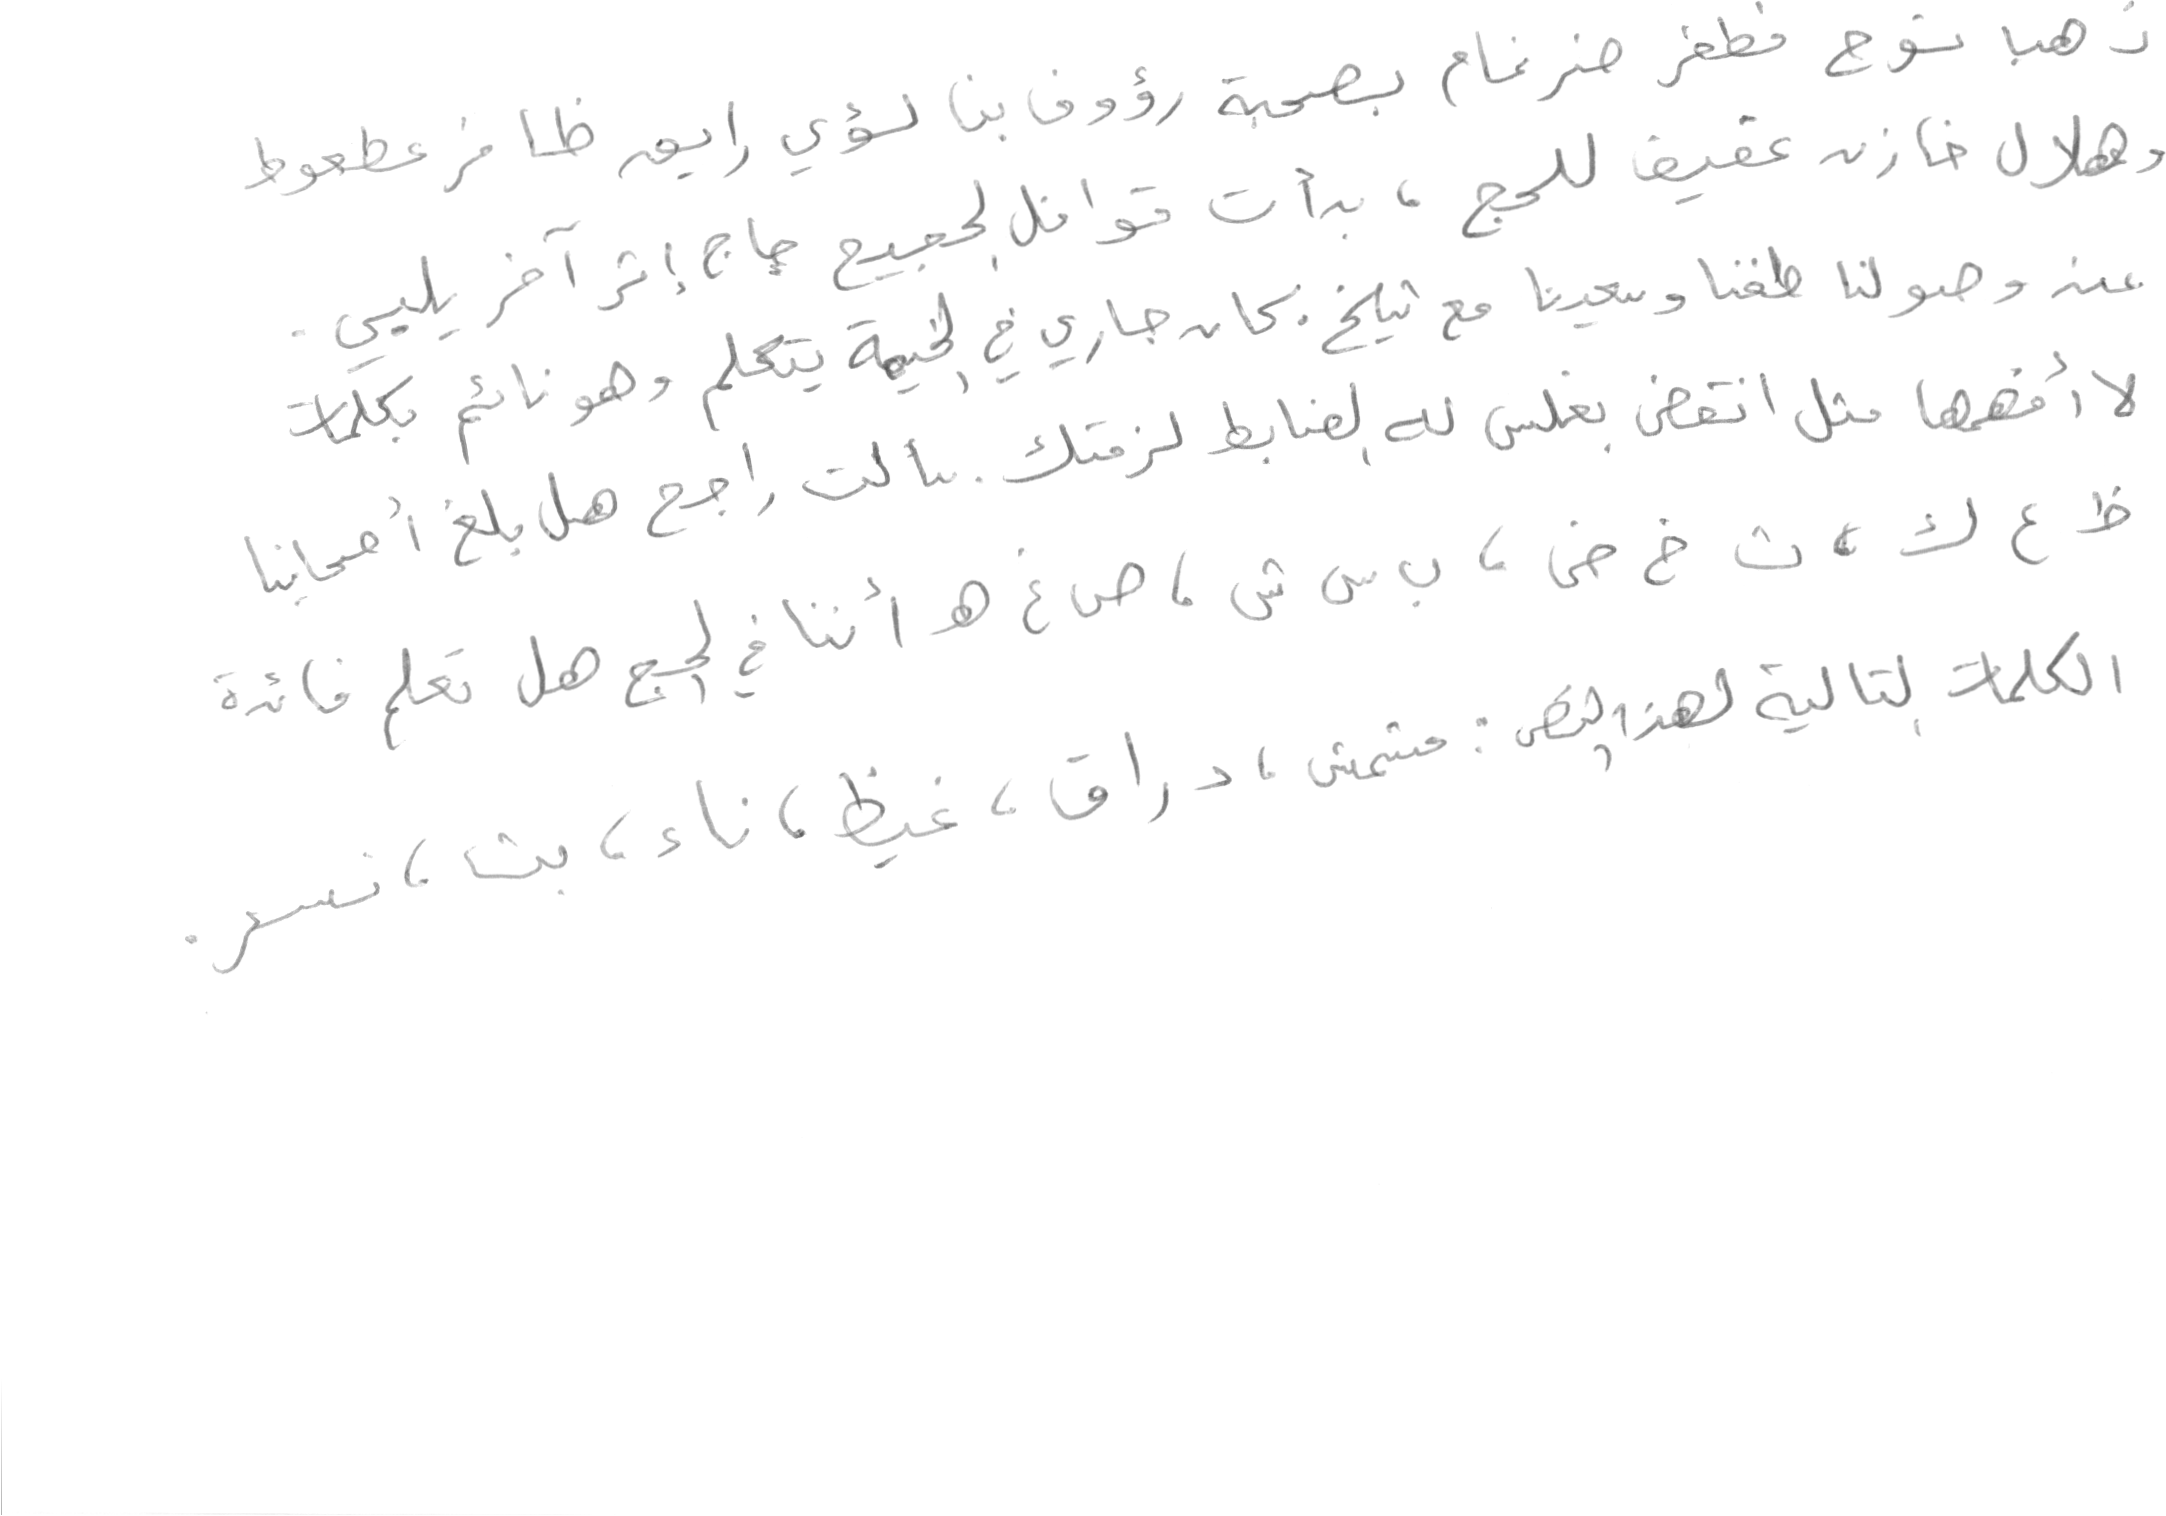 ذهب نوح مظفر ضرغام بصحبة رؤوف بن لؤي رايق ظافر عطعوط
وهلال خازن عفيف للحج ، بدأت قوافل الحجيج حاج إثر آخر يلبي .
عند وصولنا طفنا وسعينا مع شيخ . كان جاري في الخيمة يتكلم وهو نائم بكلمات
لا أفهمها مثل انقض بغلس لله الضابط لزمتك . سألت راجح هل بلغ أصحابنا
ظ ع ك ، ث خ ض ، ب س ش ، ص غ هـ أننا في الحج هل تعلم فائدة
الكلمات التالية لهذا النص : مشمش ، دراق ، غيظ ، ناء ، بث ، نسر .